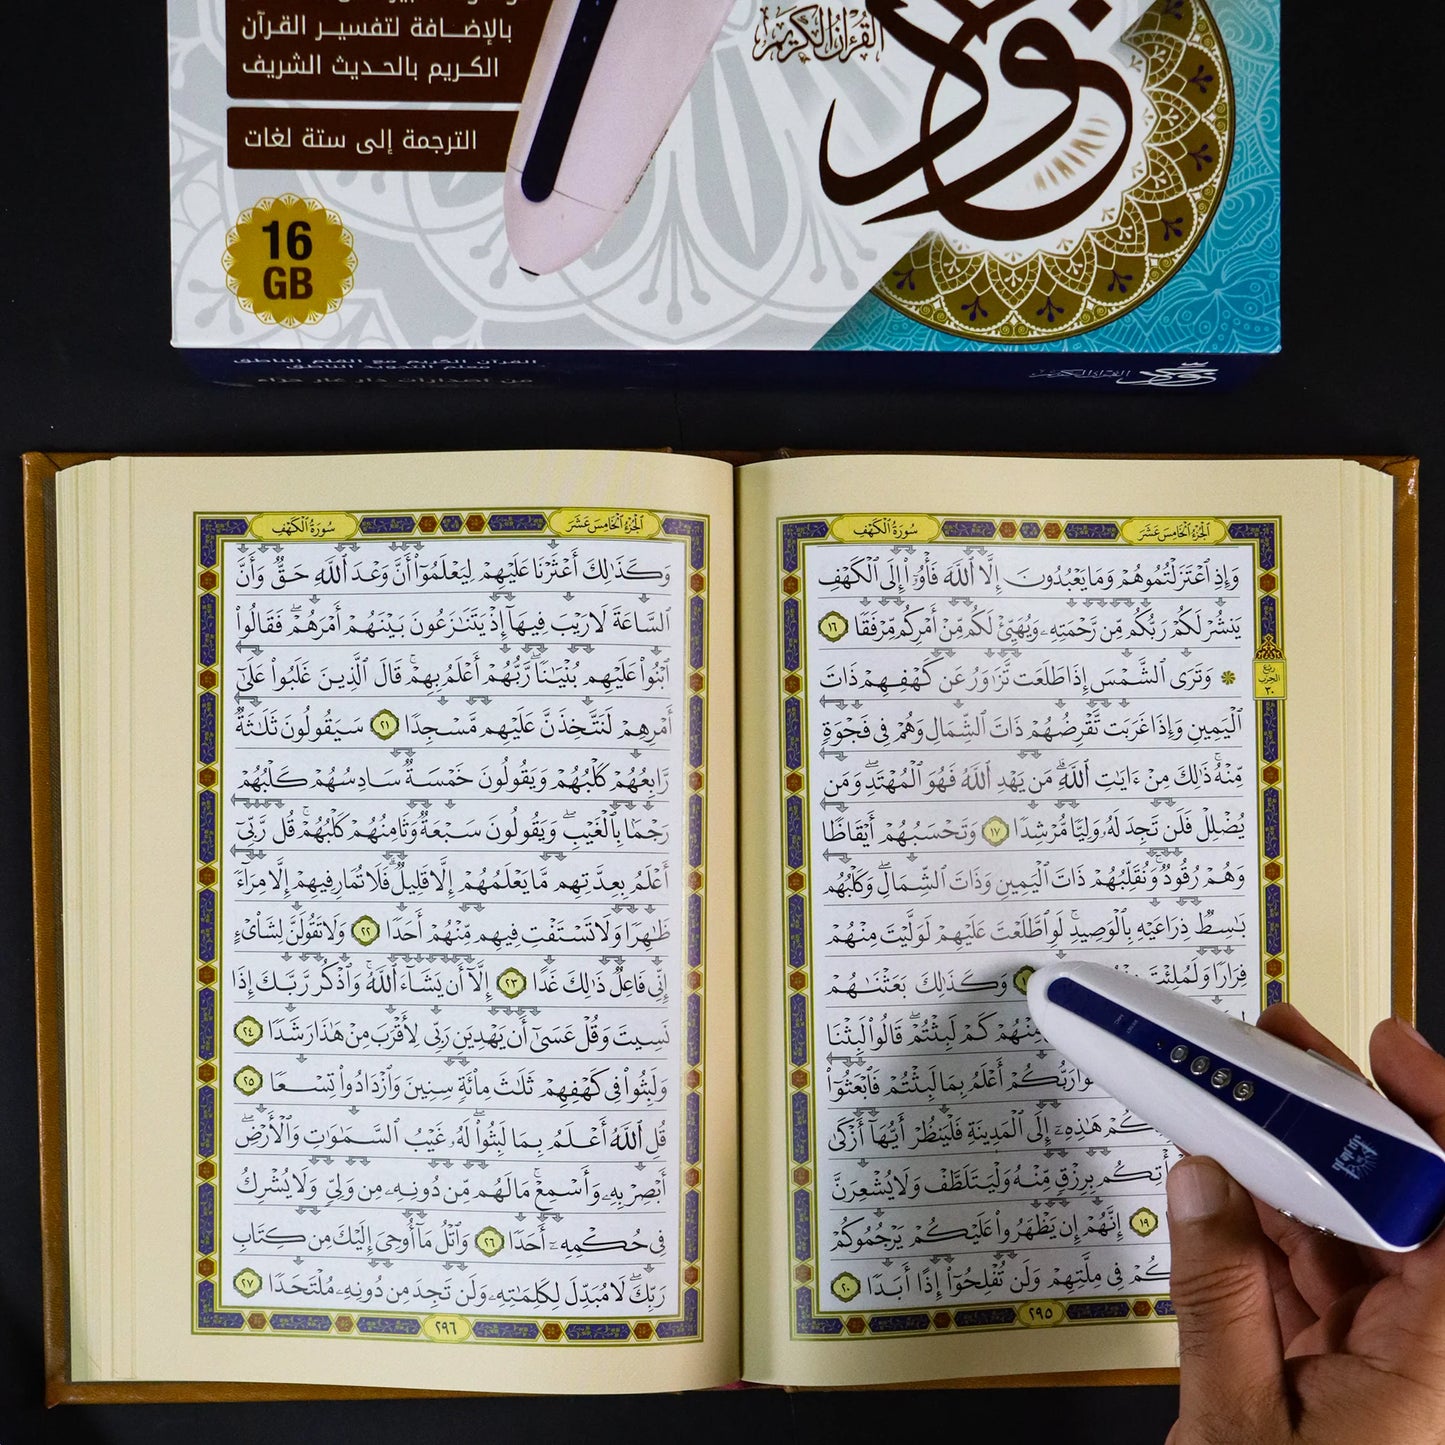 بالإضافة لتفسير القرآن
الكريم بالحديث الشريف
الترجمة إلى ستة لغات
16
GB
القرآن الكريم
نور
القرآن الكريم مع القلم الناطق
معلم التجويد الناطق
من اصدارات دار غار حراء
القرآن الكريم
نور
الجزء الخامس عشر
سورة الكهف
وَإِذِ ٱعۡتَزَلۡتُمُوهُمۡ وَمَا يَعۡبُدُونَ إِلَّا ٱللَّهَ فَأۡوُۥٓاْ إِلَى ٱلۡكَهۡفِ
يَنشُرۡ لَكُمۡ رَبُّكُم مِّن رَّحۡمَتِهِۦ وَيُهَيِّئۡ لَكُم مِّنۡ أَمۡرِكُم مِّرۡفَقٗا ١٦
۞ وَتَرَى ٱلشَّمۡسَ إِذَا طَلَعَت تَّزَٰوَرُ عَن كَهۡفِهِمۡ ذَاتَ
ٱلۡيَمِينِ وَإِذَا غَرَبَت تَّقۡرِضُهُمۡ ذَاتَ ٱلشِّمَالِ وَهُمۡ فِي فَجۡوَةٖ
مِّنۡهُۚ ذَٰلِكَ مِنۡ ءَايَٰتِ ٱللَّهِۗ مَن يَهۡدِ ٱللَّهُ فَهُوَ ٱلۡمُهۡتَدِۖ وَمَن
يُضۡلِلۡ فَلَن تَجِدَ لَهُۥ وَلِيّٗا مُّرۡشِدٗا ١٧ وَتَحۡسَبُهُمۡ أَيۡقَاظٗا
وَهُمۡ رُقُودٞۚ وَنُقَلِّبُهُمۡ ذَاتَ ٱلۡيَمِينِ وَذَاتَ ٱلشِّمَالِۖ وَكَلۡبُهُم
بَٰسِطٞ ذِرَاعَيۡهِ بِٱلۡوَصِيدِۚ لَوِ ٱطَّلَعۡتَ عَلَيۡهِمۡ لَوَلَّيۡتَ مِنۡهُمۡ
فِرَارٗا وَلَمُلِئۡتَ وَكَذَٰلِكَ بَعَثۡنَٰهُمۡ
مِّنۡهُمۡ كَمۡ لَبِثۡتُمۡۖ قَالُواْ لَبِثۡنَا
رَبُّكُمۡ أَعۡلَمُ بِمَا لَبِثۡتُمۡ فَٱبۡعَثُوٓاْ
هَٰذِهِۦٓ إِلَى ٱلۡمَدِينَةِ فَلۡيَنظُرۡ أَيُّهَآ أَزۡكَىٰ
بِرِزۡقٖ مِّنۡهُ وَلۡيَتَلَطَّفۡ وَلَا يُشۡعِرَنَّ
١٩ إِنَّهُمۡ إِن يَظۡهَرُواْ عَلَيۡكُمۡ يَرۡجُمُوكُمۡ
فِي مِلَّتِهِمۡ وَلَن تُفۡلِحُوٓاْ إِذًا أَبَدٗا ٢٠
٢٩٥
ربع
الحزب
٣٠
الجزء الخامس عشر
سورة الكهف
وَكَذَٰلِكَ أَعۡثَرۡنَا عَلَيۡهِمۡ لِيَعۡلَمُوٓاْ أَنَّ وَعۡدَ ٱللَّهِ حَقّٞ وَأَنَّ
ٱلسَّاعَةَ لَا رَيۡبَ فِيهَآ إِذۡ يَتَنَٰزَعُونَ بَيۡنَهُمۡ أَمۡرَهُمۡۖ فَقَالُواْ
ٱبۡنُواْ عَلَيۡهِم بُنۡيَٰنٗاۖ رَّبُّهُمۡ أَعۡلَمُ بِهِمۡۚ قَالَ ٱلَّذِينَ غَلَبُواْ عَلَىٰٓ
أَمۡرِهِمۡ لَنَتَّخِذَنَّ عَلَيۡهِم مَّسۡجِدٗا ٢١ سَيَقُولُونَ ثَلَٰثَةٞ
رَّابِعُهُمۡ كَلۡبُهُمۡ وَيَقُولُونَ خَمۡسَةٞ سَادِسُهُمۡ كَلۡبُهُمۡ
رَجۡمَۢا بِٱلۡغَيۡبِۖ وَيَقُولُونَ سَبۡعَةٞ وَثَامِنُهُمۡ كَلۡبُهُمۡۚ قُل رَّبِّيٓ
أَعۡلَمُ بِعِدَّتِهِم مَّا يَعۡلَمُهُمۡ إِلَّا قَلِيلٞۗ فَلَا تُمَارِ فِيهِمۡ إِلَّا مِرَآءٗ
ظَٰهِرٗا وَلَا تَسۡتَفۡتِ فِيهِم مِّنۡهُمۡ أَحَدٗا ٢٢ وَلَا تَقُولَنَّ لِشَاْيۡءٍ
إِنِّي فَاعِلٞ ذَٰلِكَ غَدًا ٢٣ إِلَّآ أَن يَشَآءَ ٱللَّهُۚ وَٱذۡكُر رَّبَّكَ إِذَا
نَسِيتَ وَقُلۡ عَسَىٰٓ أَن يَهۡدِيَنِ رَبِّي لِأَقۡرَبَ مِنۡ هَٰذَا رَشَدٗا ٢٤
وَلَبِثُواْ فِي كَهۡفِهِمۡ ثَلَٰثَ مِاْئَةٖ سِنِينَ وَٱزۡدَادُواْ تِسۡعٗا ٢٥
قُلِ ٱللَّهُ أَعۡلَمُ بِمَا لَبِثُواْۖ لَهُۥ غَيۡبُ ٱلسَّمَٰوَٰتِ وَٱلۡأَرۡضِۖ
أَبۡصِرۡ بِهِۦ وَأَسۡمِعۡۚ مَا لَهُم مِّن دُونِهِۦ مِن وَلِيّٖ وَلَا يُشۡرِكُ
فِي حُكۡمِهِۦٓ أَحَدٗا ٢٦ وَٱتۡلُ مَآ أُوحِيَ إِلَيۡكَ مِن كِتَابِ
رَبِّكَۖ لَا مُبَدِّلَ لِكَلِمَٰتِهِۦ وَلَن تَجِدَ مِن دُونِهِۦ مُلۡتَحَدٗا ٢٧
٢٩٦